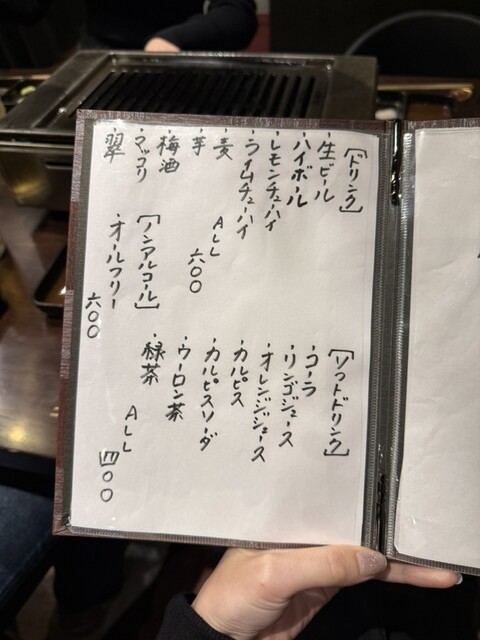 [ドリンク]
・生ビール
・ハイボール
・レモンチューハイ
・ライムチューハイ
・麦
・芋
・梅酒
・マッコリ
・翠
ALL
六〇〇
[ノンアルコール]
・オールフリー
六〇〇
[ソフトドリンク]
・コーラ
・リンゴジュース
・オレンジジュース
・カルピス
・カルピスソーダ
・ウーロン茶
・緑茶
ALL
四〇〇